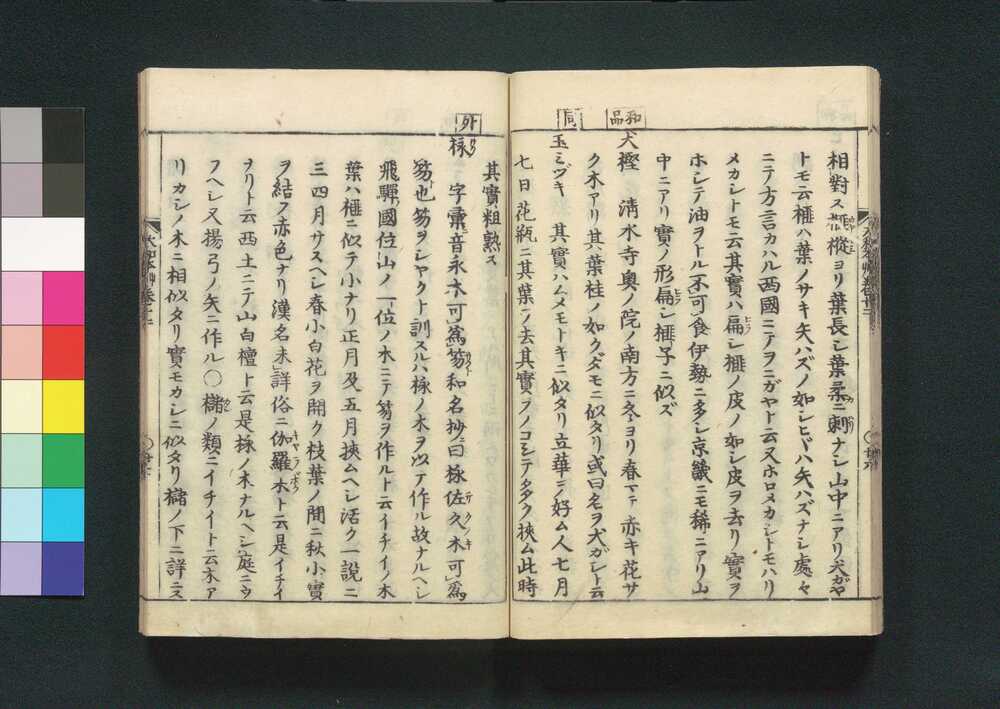 相對ス 樅ヨリ葉長シ葉柔ニ刺ナシ山中ニアリ犬ガヤ
トモ云榧ハ葉ノサキ矢ハズノ如シヒバハ矢ハズナシ處々
ニテ方言カハル西國ニテヲニガヤト云又ホロメカシトモハリ
メカシトモ云其實ハ扁シ榧ノ皮ノ如シ皮ヲ去リ實ヲ
ホシテ油ヲトル不可食伊勢ニ多シ京畿ニモ稀ニアリ山
中ニアリ實ノ形扁シ榧子ニ似ズ
和品
犬樫 清水寺奧ノ院ノ南方ニ冬ヨリ春マテ赤キ花サ
ク木アリ其葉桂ノ如クダモニ似タリ或曰名ヲ犬ガシト云
同
玉ミヅキ 其實ハムメモトキニ似タリ立華ニ好ム人七月
七日花瓶ニ其葉ヲ去其實ヲノコシテ多ク挾ム此時
其實粗熟ス
外
柀 字彙音永木可爲笏和名抄ニ曰柀佐久木可爲
笏也笏ヲシヤクト訓スルハ柀ノ木ヲ以テ作ル故ナルヘシ
飛驒國位山ノ一位ノ木ニテ笏ヲ作ルト云イチイノ木
葉ハ榧ニ似テ小ナリ正月及五月挾ムヘシ活ク一說ニ
三四月サスヘシ春小白花ヲ開ク枝葉ノ間ニ秋小實
ヲ結フ赤色ナリ漢名未詳俗ニ伽羅木ト云是イチイ
ヲリト云西土ニテ山白檀ト云是柀ノ木ナルヘシ庭ニウ
フヘシ又揚弓ノ矢ニ作ル〇槧ノ類ニイチイト云木ア
リカシノ木ニ相似タリ實モカシニ似タリ槧ノ下ニ詳ニス